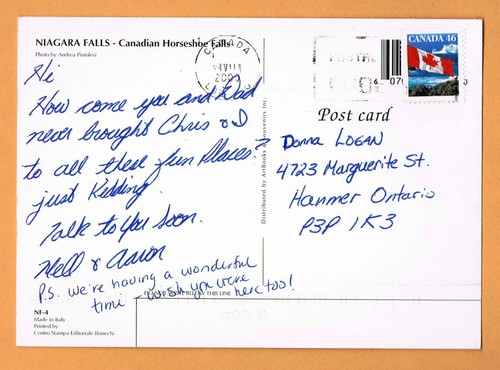 NIAGARA FALLS - Canadian Horseshoe Falls
Photo by Andrea Pistolesi
Hi
How come you and Dad
never brought Chris & I
to all these fun Places?
just Kidding.
Talk to You Soon.
Mell & Aaron
P.S. we're having a wonderful
time - wish you were
here too!
NF-4
Made in Italy
Printed by
Centro Stampa Editoriale Bonechi
Distributed by ArtBooks & Souvenirs Inc.
CANADA
CANADA 46
Post card
Donna LOGAN
4723 Marguerite St.
Hanmer Ontario
P3P 1K3
BELOW THIS LINE